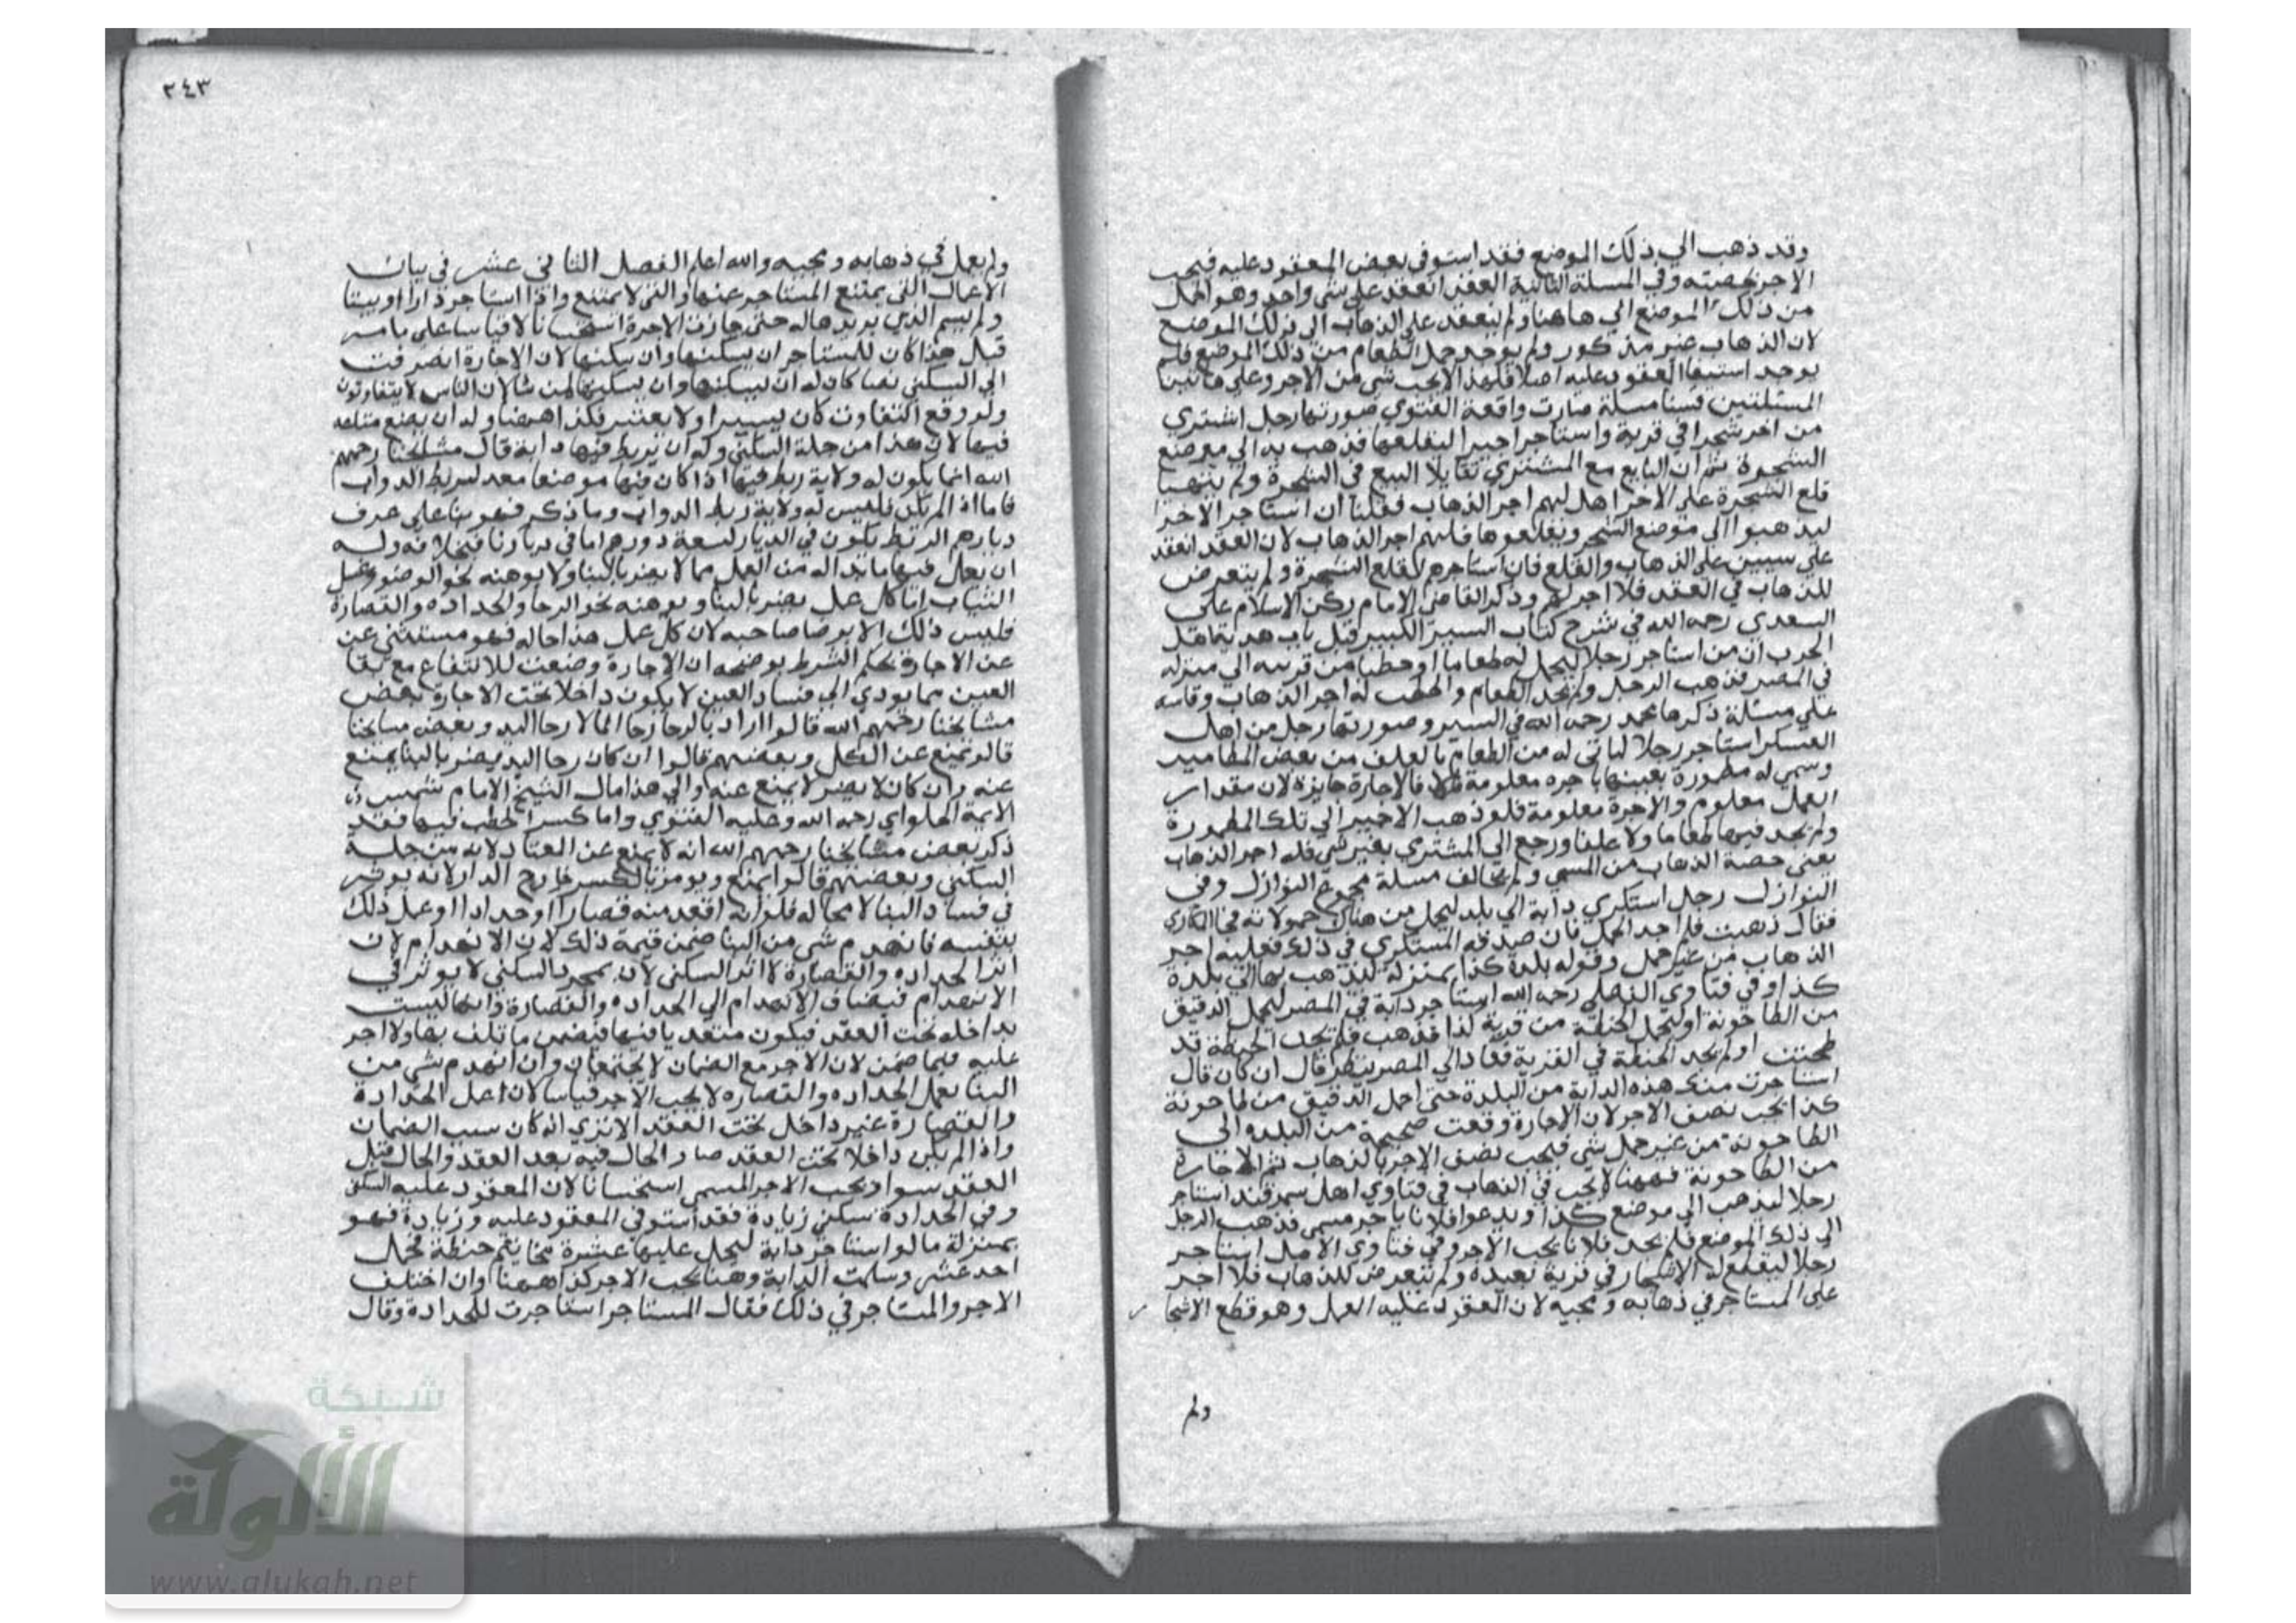 وقد ذهب الي ذلك الموضع فقد استوفى بعض المعقود عليه فيجب
الاجر بحصته وفي المسلة الثانية العقد انعقد على شي واحد وهو الحمل
من ذلك الموضع الي هاهنا ولم ينعقد على الذهاب الى ذلك الموضع
لان الذهاب غير مذكور ولم يوجد حمل الطعام من ذلك الموضع فلم
يوجد استيفا المعقود عليه اصلا فلهذا لا يجب شي من الاجر وعلى هاتين
المسئلتين قسنا مسلة صارت واقعة الفتوي صورتها رجل اشتري
من اخر شجرا في قرية واستاجر اجيرا ليقلعها فذهب به الي موضع
الشجرة ثم ان البايع مع المشتري تقايلا البيع في الشجرة ولم يتهيا
قلع الشجرة على الاجرا هل لهم اجر الذهاب فقلنا ان استاجر الاجرا
ليذهبوا الى موضع الشجر ويقلعوها فلهم اجر الذهاب لان العقد انعقد
علي سببين على الذهاب والقلع فان استاجرهم لقلع الشجرة ولم يتعرض
للذهاب في العقد فلا اجر لهم وذكر القاضي الامام ركن الاسلام علي
السعدي رحمه الله في شرح كتاب السير الكبير قبل باب هدية اهل
الحرب ان من استاجر رجلا ليحمل له طعاما او حطبا من قريه الي منزله
في المصر فذهب الرجل ولم يجد الطعام والحطب له اجر الذهاب وقاسه
علي مسئلة ذكرها محمد رحمه الله في السير وصورتها رجل من اهل
العسكر استاجر رجلا لياتى له من الطعام بالعلف من بعض المطامير
وسمي له مطمورة بعينها باجره معلومة فالاجارة جايزة لان مقدار
العمل معلوم والاجرة معلومة فلو ذهب الاجير الي تلك المطمورة
ولم يجد فيها طعاما ولا علفا ورجع الي المشتري بغير شي فله اجر الذهاب
يعنى حصة الذهاب من المسمي ولم تخالف مسلة مجموع النوازل وفي
النوازل رجل استكري دابة الي بلد ليحمل من هناك حمولاته فجا المكاري
فقال ذهبت فلم اجد الحمل فان صدقه المستكري في ذلك فعليه اجر
الذهاب من غير حمل وقوله بلدة كذا بمنزلة ليذهب بها الي بلدة
كذا وفي فتاوي الفضلي رحمه الله استاجر دابة في المصر ليحمل الدقيق
من الطاحونة او ليحمل الحنطة من قرية كذا فذهب فلم يجد الحنطة قد
طحنت او لم يجد الحنطة في القرية فعاد الي المصر ينظر قال ان كان قال
استاجرت منك هذه الدابة من البلدة حتى احمل الدقيق من طاحونة
كذا يجب نصف الاجر لان الاجارة وقعت صحيحة من البلده الى
الطاحونة من غير حمل شي فيجب نصف الاجر بالذهاب ثم الاجارة
من الطاحونة فههنا لا يجب في الذهاب في فتاوي اهل سمرقند استاجر
رجلا ليذهب الى موضع كذا ويدعوا فلانا باجر مسمى فذهب الرجل
الى ذلك الموضع فلم يجد فلانا يجب الاجر وفي فتاوي الاصل استاجر
رجلا ليقطع له الاشجار في قرية بعيدة ولم يتعرض للذهاب فلا اجر
على المستاجر في ذهابه ومجيه لان العقود عليه العمل وهو قطع الاشجا
ولم
٣٤٣
ولم يعمل في ذهابه ومجيه والله اعلم الفصل الثانى عشر في بيان
الاعمال التى يمتنع المستاجر عنها والتى لا يمتنع واذا استاجر دارا او بيتا
ولم يسم الذي يريدها له حتى جازت الاجرة استحسانا لا قياسا على ما مر
قبل هذا كان للمستاجر ان يسكنها وان يسكنها لان الاجارة انصرفت
الي السكني نصا كان له ان يسكنها وان يسكنها لمن شا لان الناس لا يتفاوتون
ولو وقع التفاوت كان يسيرا ولا يعتبر فكذا ههنا وله ان يضع متاعه
فيها لان هذا من جملة السكني وله ان يربط فيها دابة قال مشايخنا رحمهم
الله انما يكون له ولاية ربط فيها اذا كان فيها موضعا معد لربط الدواب
فاما اذا لم يكن فليس له ولاية ربط الدواب وما ذكر فهو بنا على عرف
ديارهم الربط يكون في الديار لسعة دورهم اما في ديارنا فبخلافه وله
ان يعمل فيها ما بدا له من العمل مما لا يضر بالبنا ولا يوهنه نحو الوضو وغسل
الثياب اما كل عمل يضر بالبنا ويوهنه نحو الرحا والحداده والقصارة
فليس ذلك الا برضا صاحبه لان كل عمل هذا حاله فهو مستثنى عن
عن الاجارة بحكم الشرط يوضحه ان الاجارة وضعت للانتفاع مع بقا
العين مما يودي الي فساد العين لا يكون داخلا تحت الاجارة بعض
مشايخنا رحمهم الله قالوا اراد بالرحا رحا الما لا رحا اليد وبعض مشايخنا
قالو يمنع عن الكل وبعضهم قالوا ان كان رحا اليد يضر بالبنا يمنع
عنه وان كان لا يضر لا يمنع عنه والي هذا مال الشيخ الامام شمس
الايمة الحلواي رحمه الله وعليه الفتوي واما كسر الحطب فيها فقد
ذكر بعض مشايخنا رحمهم الله انه لا يمنع عن المعتاد لانه من جملة
السكني وبعضهم قالوا يمنع ويومر بالكسر خارج الدار لانه يوثر
في فساد البنا لا محاله فلو انه اقعد منه قصارا او حدادا او عمل ذلك
بنفسه فانهدم شي من البنا ضمن قيمة ذلك لان الانهدام لان
اثر الحداده والقصارة لا اثر السكنى لان بمجرد السكني لا يوثر في
الانهدام فيضاف الانهدام الي الحداده والقصارة وانها ليست
بداخله تحت العقد فيكون متعديا فيها فيضمن ما تلف بها ولا اجر
عليه فيما ضمن لان الاجر مع الضمان لا يجتمعان وان انهدم شي من
البنا بعمل الحداده والقصاره لا يجب الاجر قياسا لان عمل الحدادة
والقصارة غير داخل تحت العقد الا تري انه كان سبب الضمان
واذا لم يكن داخلا تحت العقد صار الحال فيه بعد العقد والحال قبل
العقد سوا ويجب الاجر المسمى استحسانا لان المعقود عليه السكنى
وفي الحدادة سكنى زيادة فقد استوفي المعقود عليه وزيادة فهو
بمنزلة ما لو استاجر دابة ليحمل عليها عشرة مخاتيم حنطة فحمل
احد عشر وسلمت الدابة وهنا يجب الاجر كذا ههنا وان اختلف
الاجر والمستاجر في ذلك فقال المستاجر استاجرت للحدادة وقال
شبكة
الألوكة
www.alukah.net